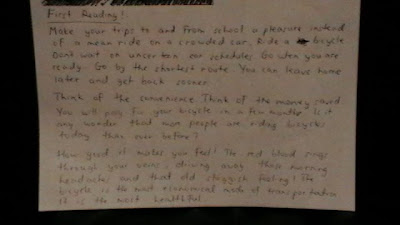 First Reading!
Make your trips to and from school a pleasure instead
of a mean ride on a crowded car. Ride a bicycle
Dont wait on uncertain car schedules Go when you are
ready. Go by the shortest route. You can leave home
later and get back sooner.
Think of the convenience Think of the money saved
You will pay for your bicycle in a few months Is it
any wonder that more people are riding bicycles
today than ever before?
How good it makes you feel! The red blood sings
through your veins driving away those morning
headaches and that old sluggish feeling! The
bicycle is the most economical mode of transportation
It is the most healthful.